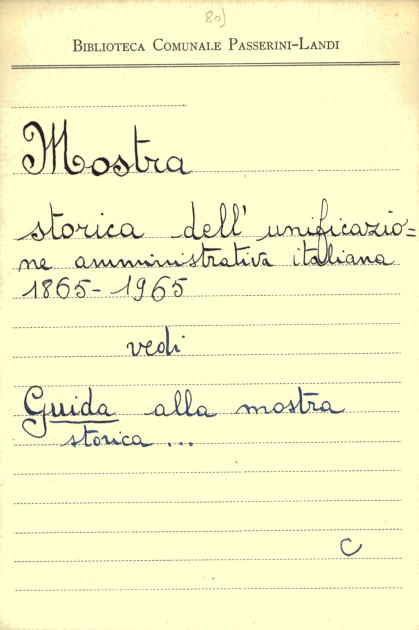 80)
BIBLIOTECA COMUNALE PASSERINI-LANDI
Mostra
storica dell' unificazio=
ne amministrativa italiana
1865-1965
vedi
Guida alla mostra
storica ...
C